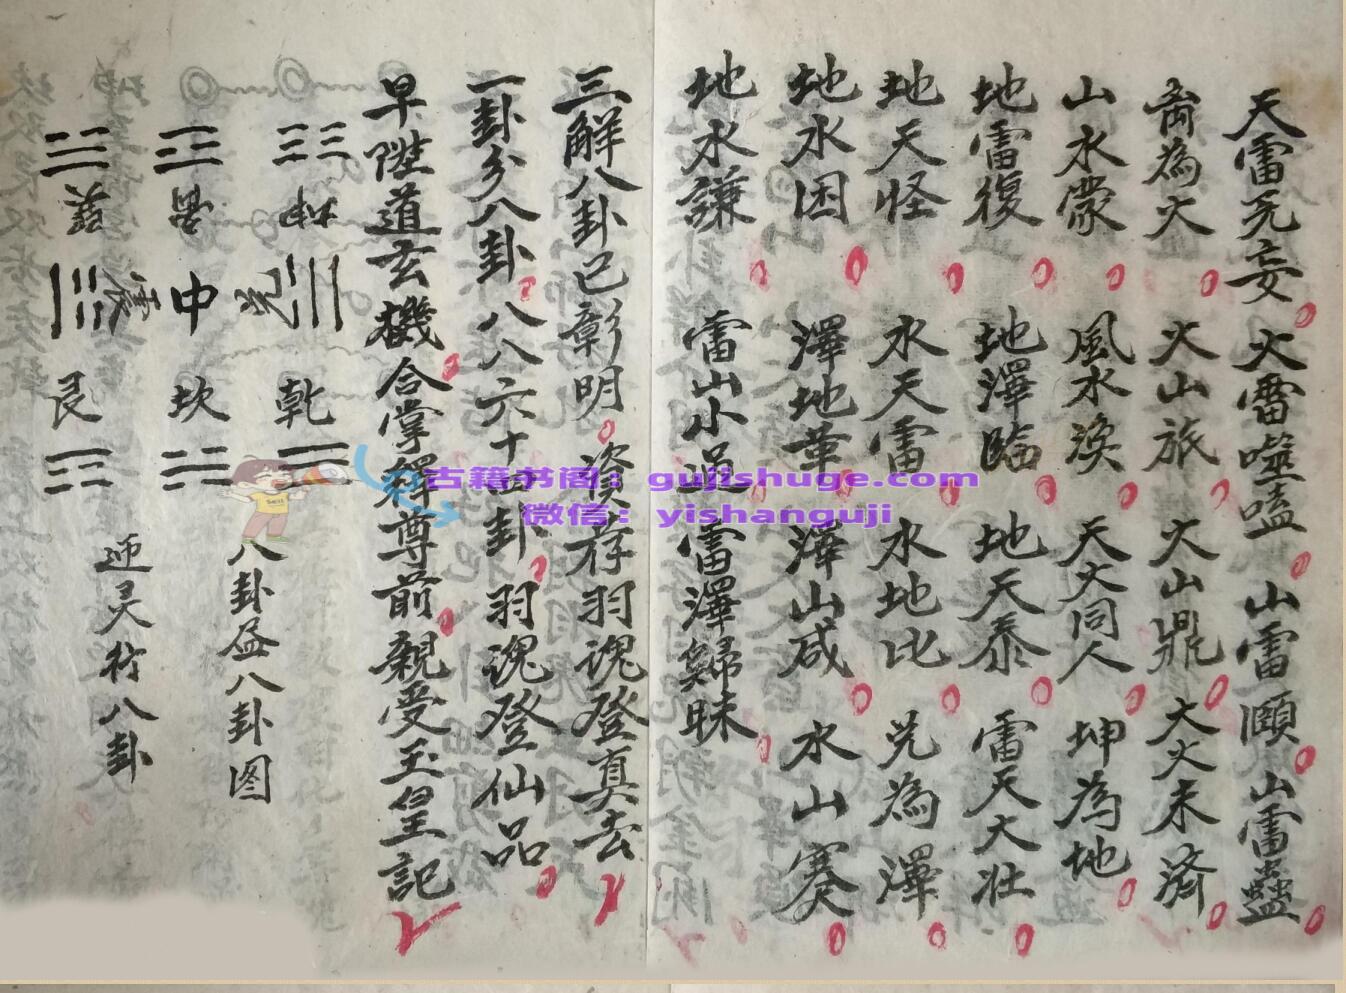 天雷无妄 火雷噬嗑 山雷頤 山雷蠱
為火 火山旅 火山鼎 火火未濟
山水蒙 風水渙 天火同人 坤為地
地雷復 地澤臨 地天泰 雷天大壮
地天怪 水天雷 水地比 兑為澤
地水困 澤地革 澤山咸 水山蹇
地水謙 雷山小过 雷澤歸昧
三解八卦已彰明 资存羽魂登真去
一卦分八卦 八八六十四卦 羽魂登仙品
早陞道玄機 合掌釋尊前 親受玉皇記
坤 兑 乾
八卦盆八卦图
离 中 坎
巽 震 艮
灵行八卦
古籍书阁：gujishuge.com
微信：yishanguji